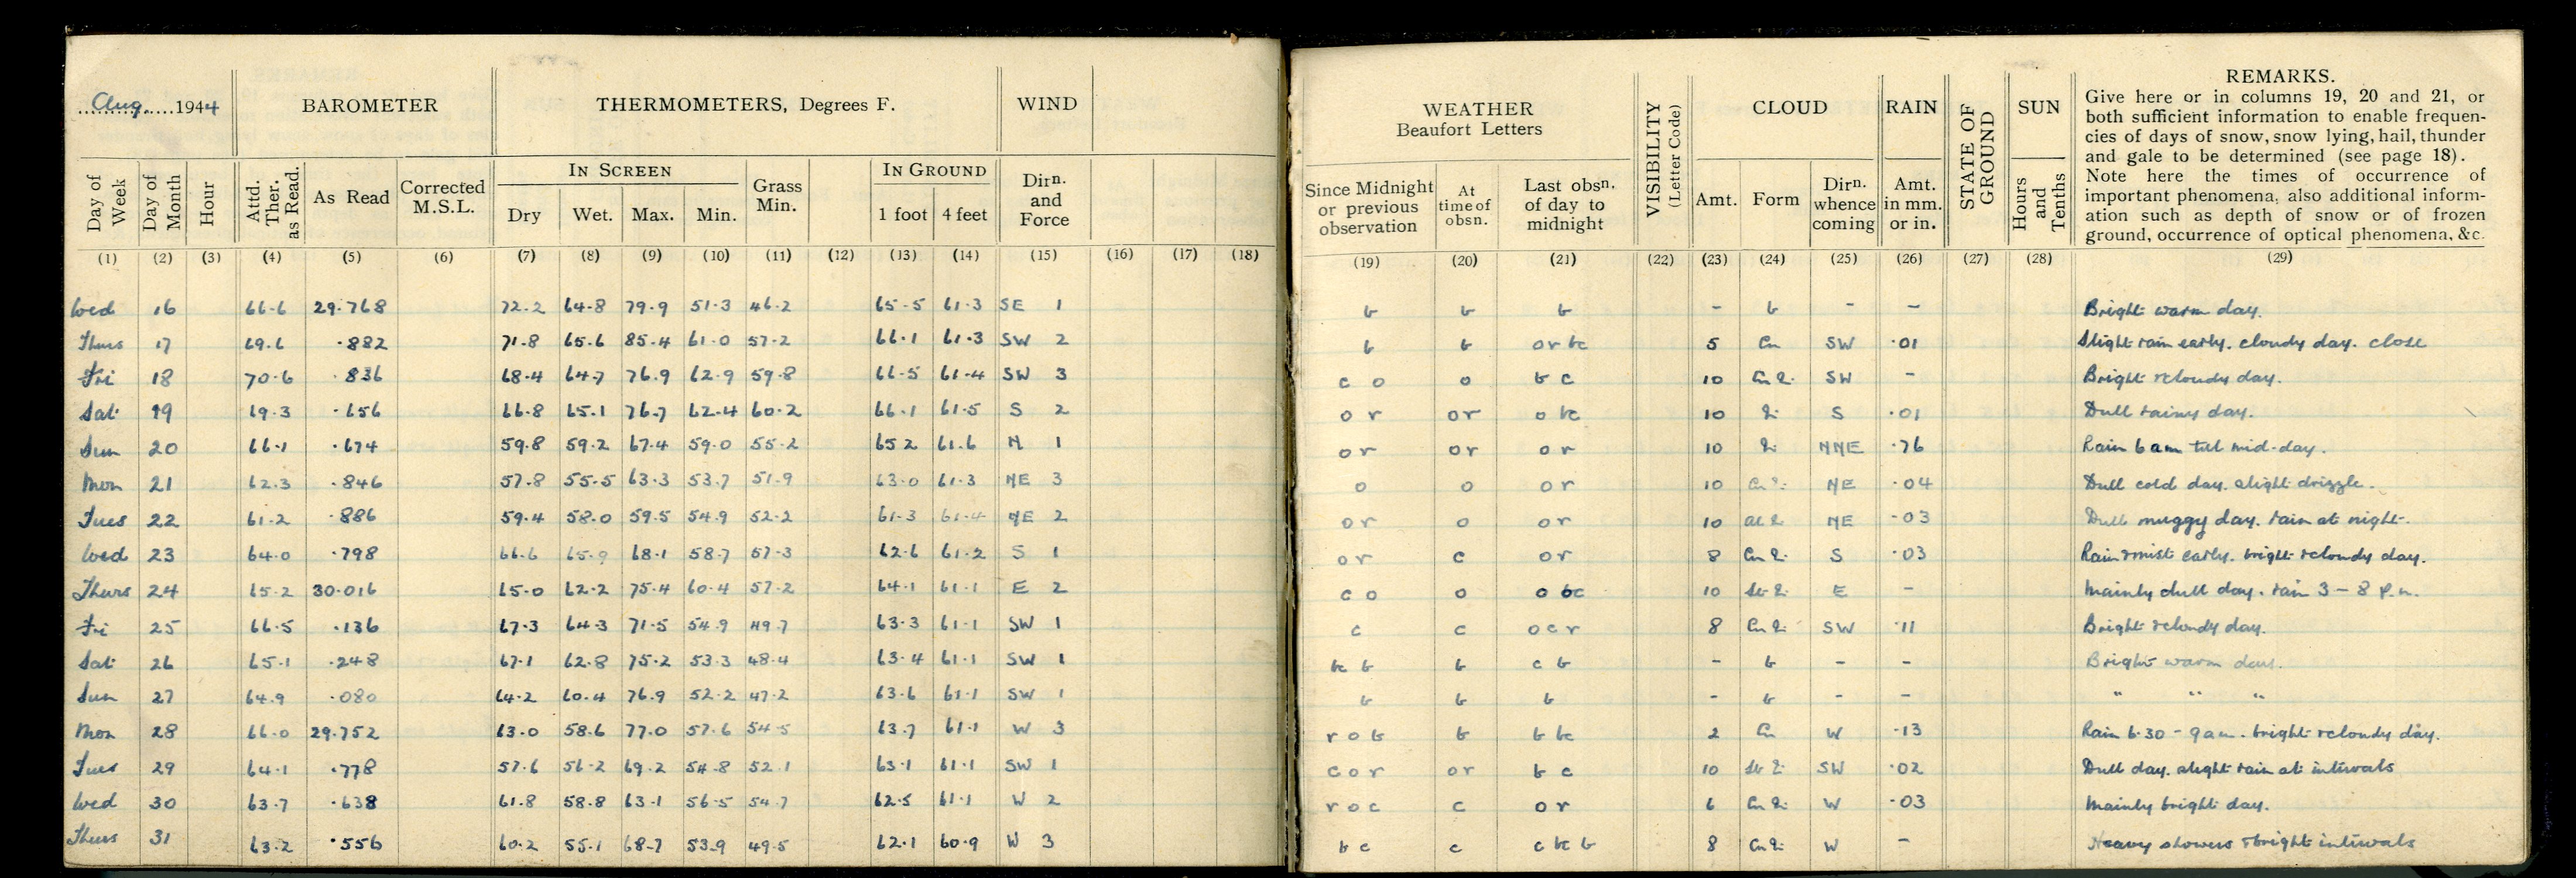 Aug. 1944
BAROMETER
THERMOMETERS, Degrees F.
WIND
Day of Week
Day of Month
Hour
Attd. Ther. as Read.
As Read
Corrected M.S.L.
IN SCREEN
Dry
Wet.
Max.
Min.
Grass Min.
IN GROUND
1 foot
4 feet
Dirn. and Force
(1) (2) (3) (4) (5) (6) (7) (8) (9) (10) (11) (12) (13) (14) (15) (16) (17) (18)
Wed 16 66.6 29.768 72.2 64.8 79.9 51.3 46.2 65.5 61.3 SE 1
Thurs 17 69.6 .882 71.8 65.6 85.4 61.0 57.2 66.1 61.3 SW 2
Fri 18 70.6 .836 68.4 64.7 76.9 62.9 59.8 66.5 61.4 SW 3
Sat 19 69.3 .656 66.8 65.1 76.7 62.4 60.2 66.1 61.5 S 2
Sun 20 66.1 .674 59.8 59.2 67.4 59.0 55.2 65.2 61.6 N 1
Mon 21 62.3 .846 57.8 55.5 63.3 53.7 51.9 63.0 61.3 NE 3
Tues 22 61.2 .886 59.4 58.0 59.5 54.9 52.2 61.3 61.4 NE 2
Wed 23 64.0 .798 66.6 65.9 68.1 58.7 57.3 62.6 61.2 S 1
Thurs 24 65.2 30.016 65.0 62.2 75.4 60.4 57.2 64.1 61.1 E 2
Fri 25 66.5 .136 67.3 64.3 71.5 54.9 49.7 63.3 61.1 SW 1
Sat 26 65.1 .248 67.1 62.8 75.2 53.3 48.4 63.4 61.1 SW 1
Sun 27 64.9 .080 64.2 60.4 76.9 52.2 47.2 63.6 61.1 SW 1
Mon 28 66.0 29.752 63.0 58.6 77.0 57.6 54.5 63.7 61.1 W 3
Tues 29 64.1 .778 57.6 56.2 69.2 54.8 52.1 63.1 61.1 SW 1
Wed 30 63.7 .638 61.8 58.8 63.1 56.5 54.7 62.5 61.1 W 2
Thurs 31 63.2 .556 60.2 55.1 68.7 53.9 49.5 62.1 60.9 W 3
WEATHER
Beaufort Letters
Since Midnight or previous observation
At time of obsn.
Last obsn. of day to midnight
VISIBILITY (Letter Code)
CLOUD
Amt.
Form
Dirn. whence coming
RAIN
Amt. in mm. or in.
STATE OF GROUND
SUN
Hours and Tenths
REMARKS.
Give here or in columns 19, 20 and 21, or
both sufficient information to enable frequen-
cies of days of snow, snow lying, hail, thunder
and gale to be determined (see page 18).
Note here the times of occurrence of
important phenomena, also additional inform-
ation such as depth of snow or of frozen
ground, occurrence of optical phenomena, &c.
(19) (20) (21) (22) (23) (24) (25) (26) (27) (28) (29)
b b b - b - - Bright warm day.
b b or bc 5 Cu SW .01 Slight rain early. cloudy day. close
c o o b c 10 SW - Bright & cloudy day.
o r or o bc 10 S .01 Dull rainy day.
o r or o r 10 NNE .76 Rain 6 am till mid-day.
o o o r 10 NE .04 Dull cold day. slight drizzle.
o r o o r 10 NE .03 Dull muggy day. rain at night.
o r c o r 8 S .03 Rain & mist early. bright & cloudy day.
c o o o bc 10 E - Mainly dull day. rain 3 - 8 p.m.
c c o c r 8 SW .11 Bright & cloudy day.
bc b b c b - b - - Bright warm day.
b b b - b - - " " "
r o b b b bc 2 Cu W .13 Rain 6.30 - 9 am. bright & cloudy day.
c o r or b c 10 SW .02 Dull day. slight rain at intervals
r o c c o r 6 W .03 Mainly bright day.
b c c c bc b 8 W - Heavy showers & bright intervals